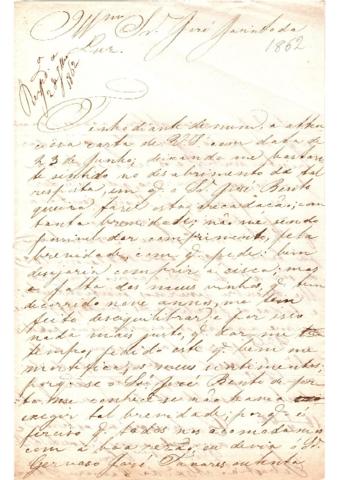 Illmo Sr. José Jacinto da
Luz.
1862
Respdo a
2 de
1862
Tenho diante de mim, a atten
ciosa carta de V.S. com data de
23 de Junho; deixando me bastan
te sentido no
respeita, em q. o Sr. José Bento
queira fazer esta arrecadação, com
tanta brevidade; não me sendo
dar comprimento, pela
brevidade, com q. pede: bem
desejaria comprir a risca; mas
a falta dos meus vinhos, q. tem
decorrido nove annos, me tem
feito desequilibrar e por isso
nada mais justo, q. dar me
tempo, pedido este q. bem me
mortifica, os meus sentimentos;
porq. se o Sr. José Bento de per
to me conhece se não hama
exeger tal brevidade; porq. é
preciso q. todos nos acomodamos
com a boa razão, eu devia ó Sr.
Gervaso José Tavares